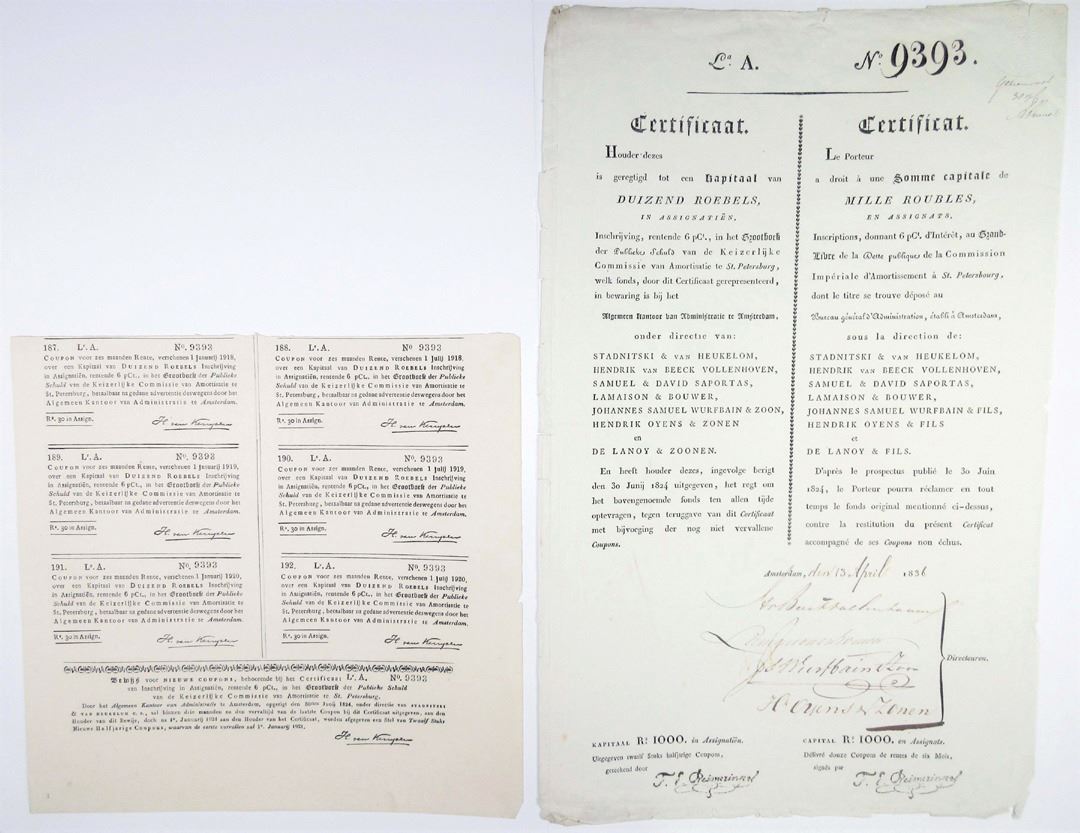 187. Lᵃ. A. Nº. 9393
COUPON voor zes maanden Rente, verschenen 1 Januarij 1918,
over een Kapitaal van DUIZEND ROEBELS Inschrijving
in Assignatiën, rentende 6 pCt., in het Grootboek der Publieke
Schuld van de Keizerlijke Commissie van Amortisatie te
St. Petersburg, betaalbaar na gedane advertentie deswegens door het
Algemeen Kantoor van Administratie te Amsterdam.
Rˢ. 30 in Assign.
H. van Kempen
188. Lᵃ. A. Nº. 9393
COUPON voor zes maanden Rente, verschenen 1 Julij 1918,
over een Kapitaal van DUIZEND ROEBELS Inschrijving
in Assignatiën, rentende 6 pCt., in het Grootboek der Publieke
Schuld van de Keizerlijke Commissie van Amortisatie te
St. Petersburg, betaalbaar na gedane advertentie deswegens door het
Algemeen Kantoor van Administratie te Amsterdam.
Rˢ. 30 in Assign.
H. van Kempen
189. Lᵃ. A. Nº. 9393
COUPON voor zes maanden Rente, verschenen 1 Januarij 1919,
over een Kapitaal van DUIZEND ROEBELS Inschrijving
in Assignatiën, rentende 6 pCt., in het Grootboek der Publieke
Schuld van de Keizerlijke Commissie van Amortisatie te
St. Petersburg, betaalbaar na gedane advertentie deswegens door het
Algemeen Kantoor van Administratie te Amsterdam.
Rˢ. 30 in Assign.
H. van Kempen
190. Lᵃ. A. Nº. 9393
COUPON voor zes maanden Rente, verschenen 1 Julij 1919,
over een Kapitaal van DUIZEND ROEBELS Inschrijving
in Assignatiën, rentende 6 pCt., in het Grootboek der Publieke
Schuld van de Keizerlijke Commissie van Amortisatie te
St. Petersburg, betaalbaar na gedane advertentie deswegens door het
Algemeen Kantoor van Administratie te Amsterdam.
Rˢ. 30 in Assign.
H. van Kempen
191. Lᵃ. A. Nº. 9393
COUPON voor zes maanden Rente, verschenen 1 Januarij 1920,
over een Kapitaal van DUIZEND ROEBELS Inschrijving
in Assignatiën, rentende 6 pCt., in het Grootboek der Publieke
Schuld van de Keizerlijke Commissie van Amortisatie te
St. Petersburg, betaalbaar na gedane advertentie deswegens door het
Algemeen Kantoor van Administratie te Amsterdam.
Rˢ. 30 in Assign.
H. van Kempen
192. Lᵃ. A. Nº. 9393
COUPON voor zes maanden Rente, verschenen 1 Julij 1920,
over een Kapitaal van DUIZEND ROEBELS Inschrijving
in Assignatiën, rentende 6 pCt., in het Grootboek der Publieke
Schuld van de Keizerlijke Commissie van Amortisatie te
St. Petersburg, betaalbaar na gedane advertentie deswegens door het
Algemeen Kantoor van Administratie te Amsterdam.
Rˢ. 30 in Assign.
H. van Kempen
Bewijs voor NIEUWE COUPONS, behoorende bij het Certificaat Lᵃ. A. Nº. 9393
van Inschrijving in Assignatiën, rentende 6 pCt., in het Grootboek der Publieke Schuld
van de Keizerlijke Commissie van Amortisatie te St. Petersburg.
Door het Algemeen Kantoor van Administratie te Amsterdam, opgerigt den 30sten Junij 1824, onder directie van STADNITSKI
& VAN HEUKELOM C. S., zal binnen drie maanden na den vervaltijd van de laatste Coupon bij dit Certificaat uitgegeven, aan den
Houder van dit Bewijs, doch na 1º. Januarij 1921 aan den Houder van het Certificaat, worden afgegeven een Stel van Twaalf Stuks
Nieuwe Halfjarige Coupons, waarvan de eerste vervallen zal 1º. Januarij 1921.
H. van Kempen
Lᵃ. A. Nº 9393.
Certificaat.
Houder dezes
is geregtigd tot een Kapitaal van
DUIZEND ROEBELS,
IN ASSIGNATIËN,
Inschrijving, rentende 6 pCt., in het Grootboek
der Publieke Schuld van de Keizerlijke
Commissie van Amortisatie te St. Petersburg,
welk fonds, door dit Certificaat gerepresenteerd,
in bewaring is bij het
Algemeen Kantoor van Administratie te Amsterdam,
onder directie van:
STADNITSKI & VAN HEUKELOM,
HENDRIK VAN BEECK VOLLENHOVEN,
SAMUEL & DAVID SAPORTAS,
LAMAISON & BOUWER,
JOHANNES SAMUEL WURFBAIN & ZOON,
HENDRIK OYENS & ZONEN
en
DE LANOY & ZOONEN.
En heeft houder dezes, ingevolge berigt
den 30 Junij 1824 uitgegeven, het regt om
het bovengenoemde fonds ten allen tijde
optevragen, tegen teruggave van dit Certificaat
met bijvoeging der nog niet vervallene
Coupons.
Certificat.
Le Porteur
a droit à une Somme capitale de
MILLE ROUBLES,
EN ASSIGNATS,
Inscriptions, donnant 6 pCt. d'Intérêt, au Grand-
Libre de la Dette publiques de la Commission
Impériale d'Amortissement à St. Petersbourg,
dont le titre se trouve déposé au
Bureau général d'Administration, établi à Amsterdam,
sous la direction de:
STADNITSKI & VAN HEUKELOM,
HENDRIK VAN BEECK VOLLENHOVEN,
SAMUEL & DAVID SAPORTAS,
LAMAISON & BOUWER,
JOHANNES SAMUEL WURFBAIN & FILS,
HENDRIK OYENS & FILS
et
DE LANOY & FILS.
D'après le prospectus publié le 30 Juin
1824, le Porteur pourra réclamer en tout
temps le fonds original mentionné ci-dessus,
contre la restitution du présent Certificat
accompagné de ses Coupons non échus.
Amsterdam, den 13 April 1836
JS Wurfbain & Zoon
H Oyens & Zonen
Directeuren.
KAPITAAL Rˢ 1000. in Assignatiën.
Uitgegeven twaalf Stuks halfjarige Coupons,
geteekend door
CAPITAL Rˢ 1000. en Assignats.
Délivré douze Coupons de rentes de six Mois,
signés par